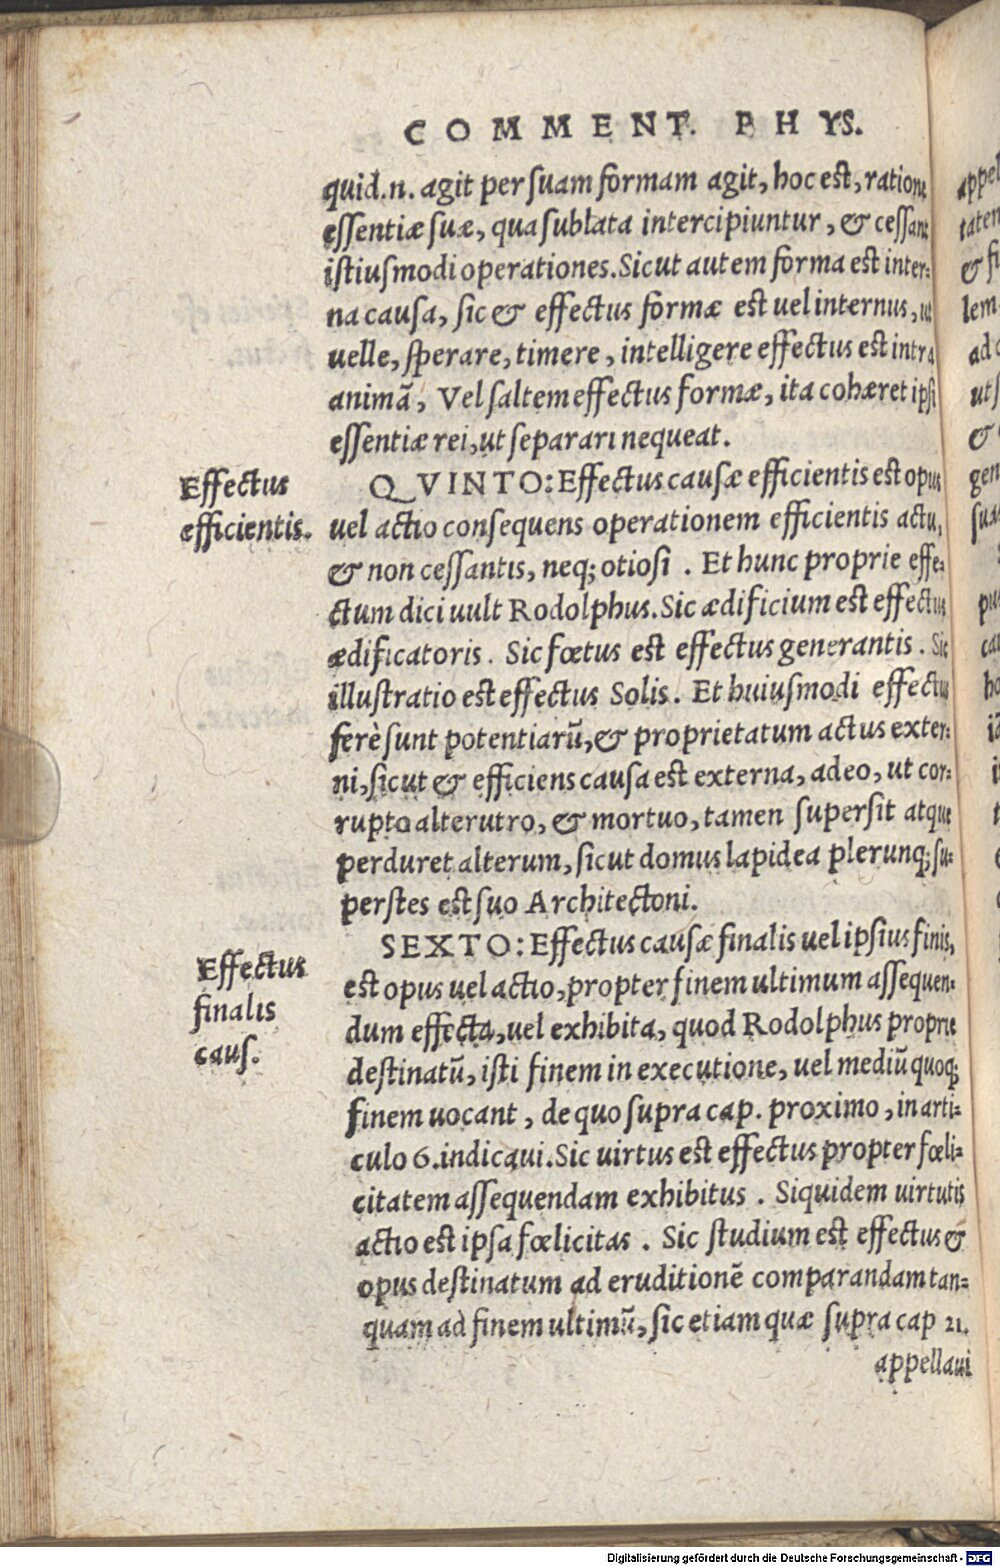 COMMENT. PHYS.
quid.n. agit per suam formam agit, hoc est, ratione
essentiæ suæ, qua sublata intercipiuntur, & cessant
istiusmodi operationes. Sicut autem forma est inter-
na causa, sic & effectus formæ est uel internus, ut
uelle, sperare, timere, intelligere effectus est intra
animã, Vel saltem effectus formæ, ita cohæret ipsi
essentiæ rei, ut separari nequeat.
Effectus
efficientis.
QVINTO: Effectus causæ efficientis est opus
uel actio consequens operationem efficientis actu,
& non cessantis, neq; otiosi. Et hunc proprie effe-
ctum dici uult Rodolphus. Sic ædificium est effectus
ædificatoris. Sic fœtus est effectus generantis. Sic
illustratio est effectus Solis. Et huiusmodi effectus
ferè sunt potentiarũ, & proprietatum actus exter-
ni, sicut & efficiens causa est externa, adeo, ut cor-
rupto alterutro, & mortuo, tamen supersit atque
perduret alterum, sicut domus lapidea plerunq; su-
perstes est suo Architectoni.
Effectus
finalis
caus.
SEXTO: Effectus causæ finalis uel ipsius finis,
est opus uel actio, propter finem ultimum assequen-
dum effecta, uel exhibita, quod Rodolphus proprie
destinatũ, isti finem in executione, uel mediũ quoq;
finem uocant, de quo supra cap. proximo, in arti-
culo 6. indicaui. Sic uirtus est effectus propter fœli-
citatem assequendam exhibitus. Siquidem uirtutis
actio est ipsa fœlicitas. Sic studium est effectus &
opus destinatum ad eruditionẽ comparandam tan-
quam ad finem ultimũ, sic etiam quæ supra cap 21.
appellaui
Digitalisierung gefördert durch die Deutsche Forschungsgemeinschaft - DFG